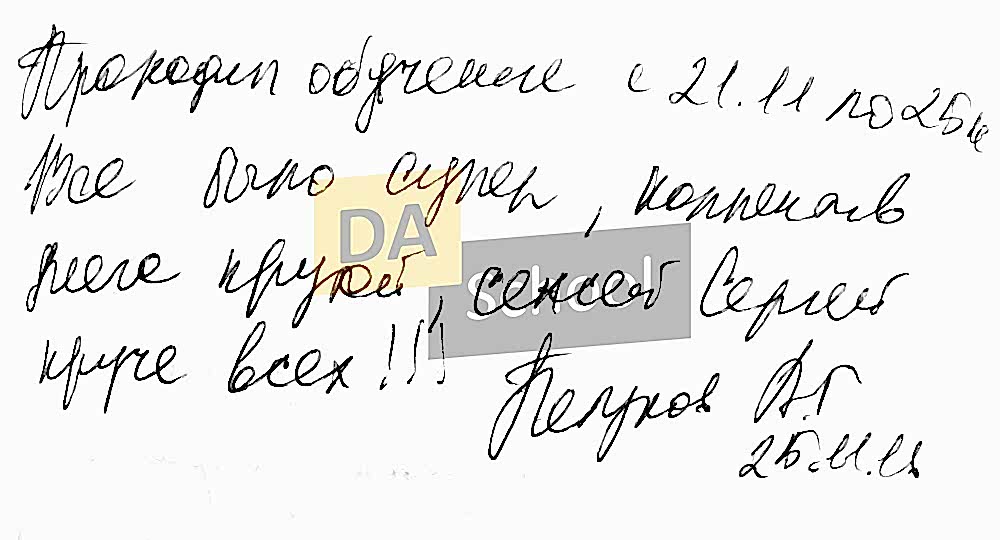 Проходил обучение с 21.11 по 25.11
Все было супер, коллектив
DA
school
мега крутой, сенсей Сергей
круче всех!!!
Петухов А.Г
25.11.11